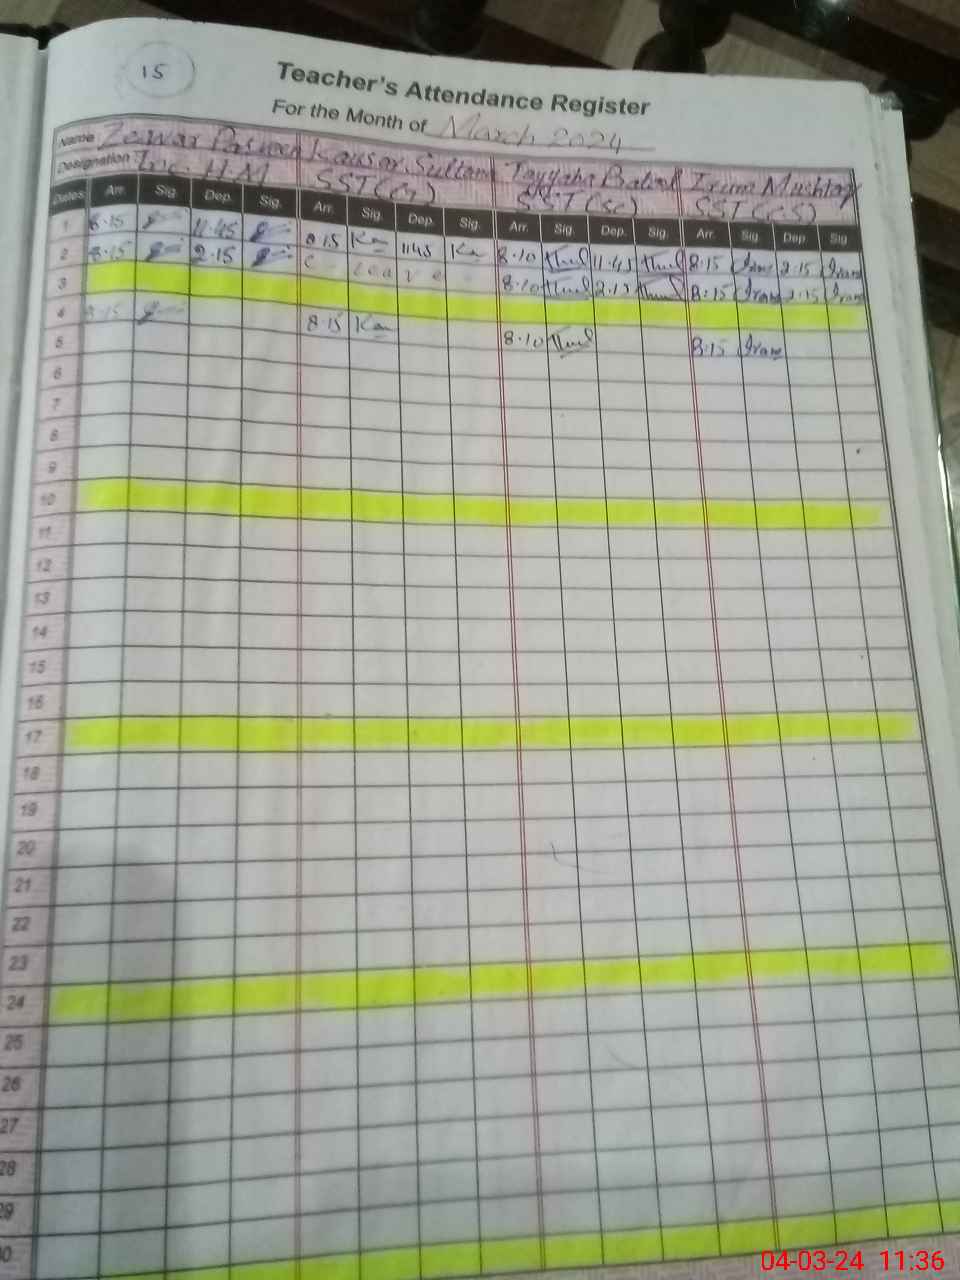 15
Teacher's Attendance Register
For the Month of March 2024
Name Zewar Parveen Kausar Sultana Tayyaba Batool Irum Mushtaq
Designation Inc. H.M SST(G) SST(SC) SST(CS)
Dates Arr. Sig. Dep. Sig. Arr. Sig. Dep. Sig. Arr. Sig. Dep. Sig. Arr. Sig. Dep. Sig.
1 8.15 11.45 8.15 Ka 11.45 Ka 8.10 11.45 8.15 Iram 2.15 Iram
2 8.15 2.15 C. Leave 8.10 2.15 8:15 Iram 2.15 Iram
3
4 8.15 8.15 Ka 8.10 8.15 Iram
5
6
7
8
9
10
11
12
13
14
15
16
17
18
19
20
21
22
23
24
25
26
27
28
29
30
04-03-24 11:36